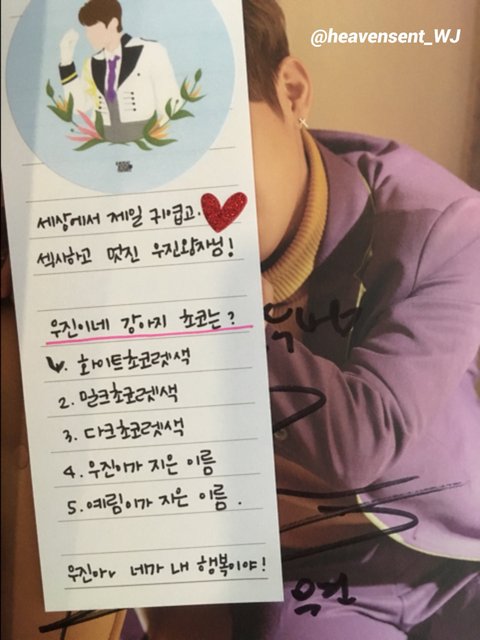 @heavensent_WJ
세상에서 제일 귀엽고
섹시하고 멋진 우진왕자님!
우진이네 강아지 초코는?
1. 화이트초코렛색
2. 밀크초코렛색
3. 다크초코렛색
4. 우진이가 지은 이름
5. 예림이가 지은 이름.
우진아~ 네가 내 행복이야!